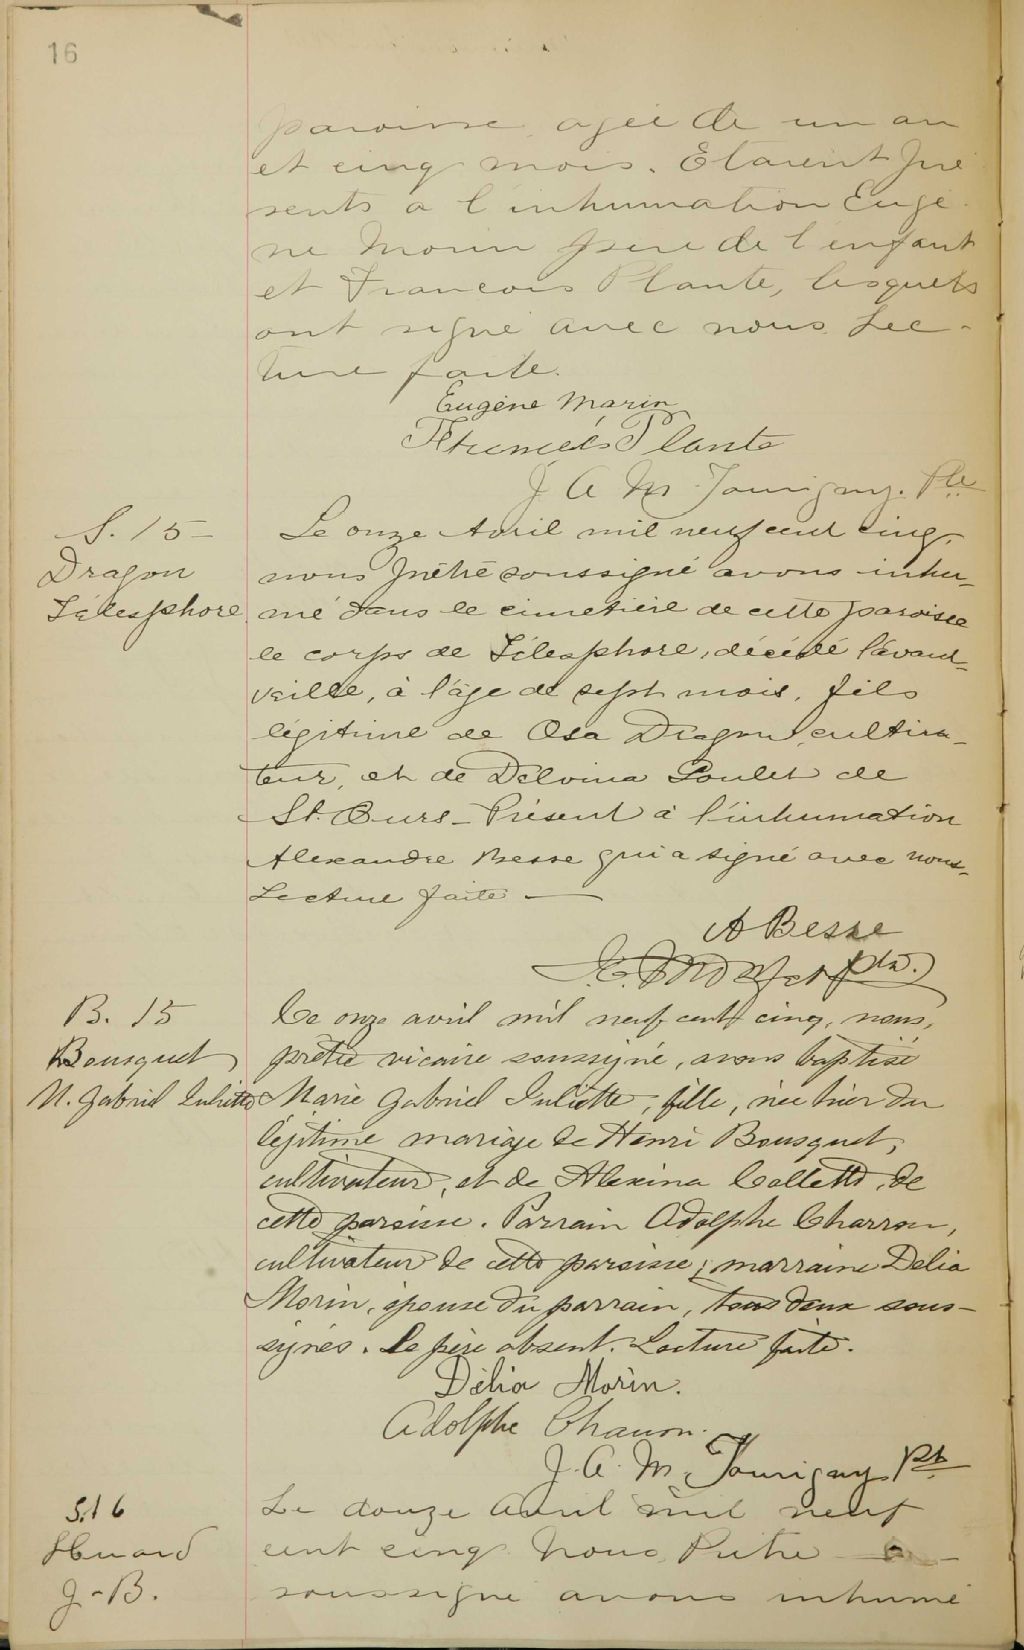 16
paroisse, agée de un an
et cinq mois. Etaient pré
sents a l'inhumation Eugè
ne Morin père de l'enfant
et Francois Plante, lesquels
ont signé avec nous Lec-
ture faite.
Eugène Morin
François Plante
J A M Tourigny. Ptre
S. 15 -
Dragon
Télesphore
Le onze Avril mil neuf cent cinq,
nous prêtre soussigné avons inhu-
mé dans le cimetière de cette paroisse
le corps de Télesphore, décédé l'avant-
veille, à l'âge de sept mois, fils
légitime de Osa Dragon, cultiva-
teur, et de Delvina Goulet de
St. Ours - Présent à l'inhumation
Alexandre Besse qui a signé avec nous.
Lecture faite —
A Besse
ptre.
B. 15
Bousquet
M. Gabriel Juliette
Le onze avril mil neuf cent cinq, nous,
prêtre vicaire soussigné, avons baptisé
Marie Gabriel Juliette, fille, née hier du
légitime mariage de Henri Bousquet,
cultivateur, et de Alexina Collette, de
cette paroisse. Parrain Adolphe Charron,
cultivateur de cette paroisse; marraine Délia
Morin, épouse du parrain, tous deux sous-
signés. Le père absent. Lecture faite.
Délia Morin.
Adolphe Charron.
J. A. M. Tourigny Pt
S.16
Huard
J-B.
Le douze Avril mil neuf
cent cinq Nous Prêtre
soussigné avons inhumé